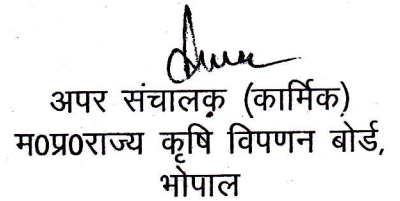 अपर संचालक (कार्मिक)
म0प्र0राज्य कृषि विपणन बोर्ड,
भोपाल